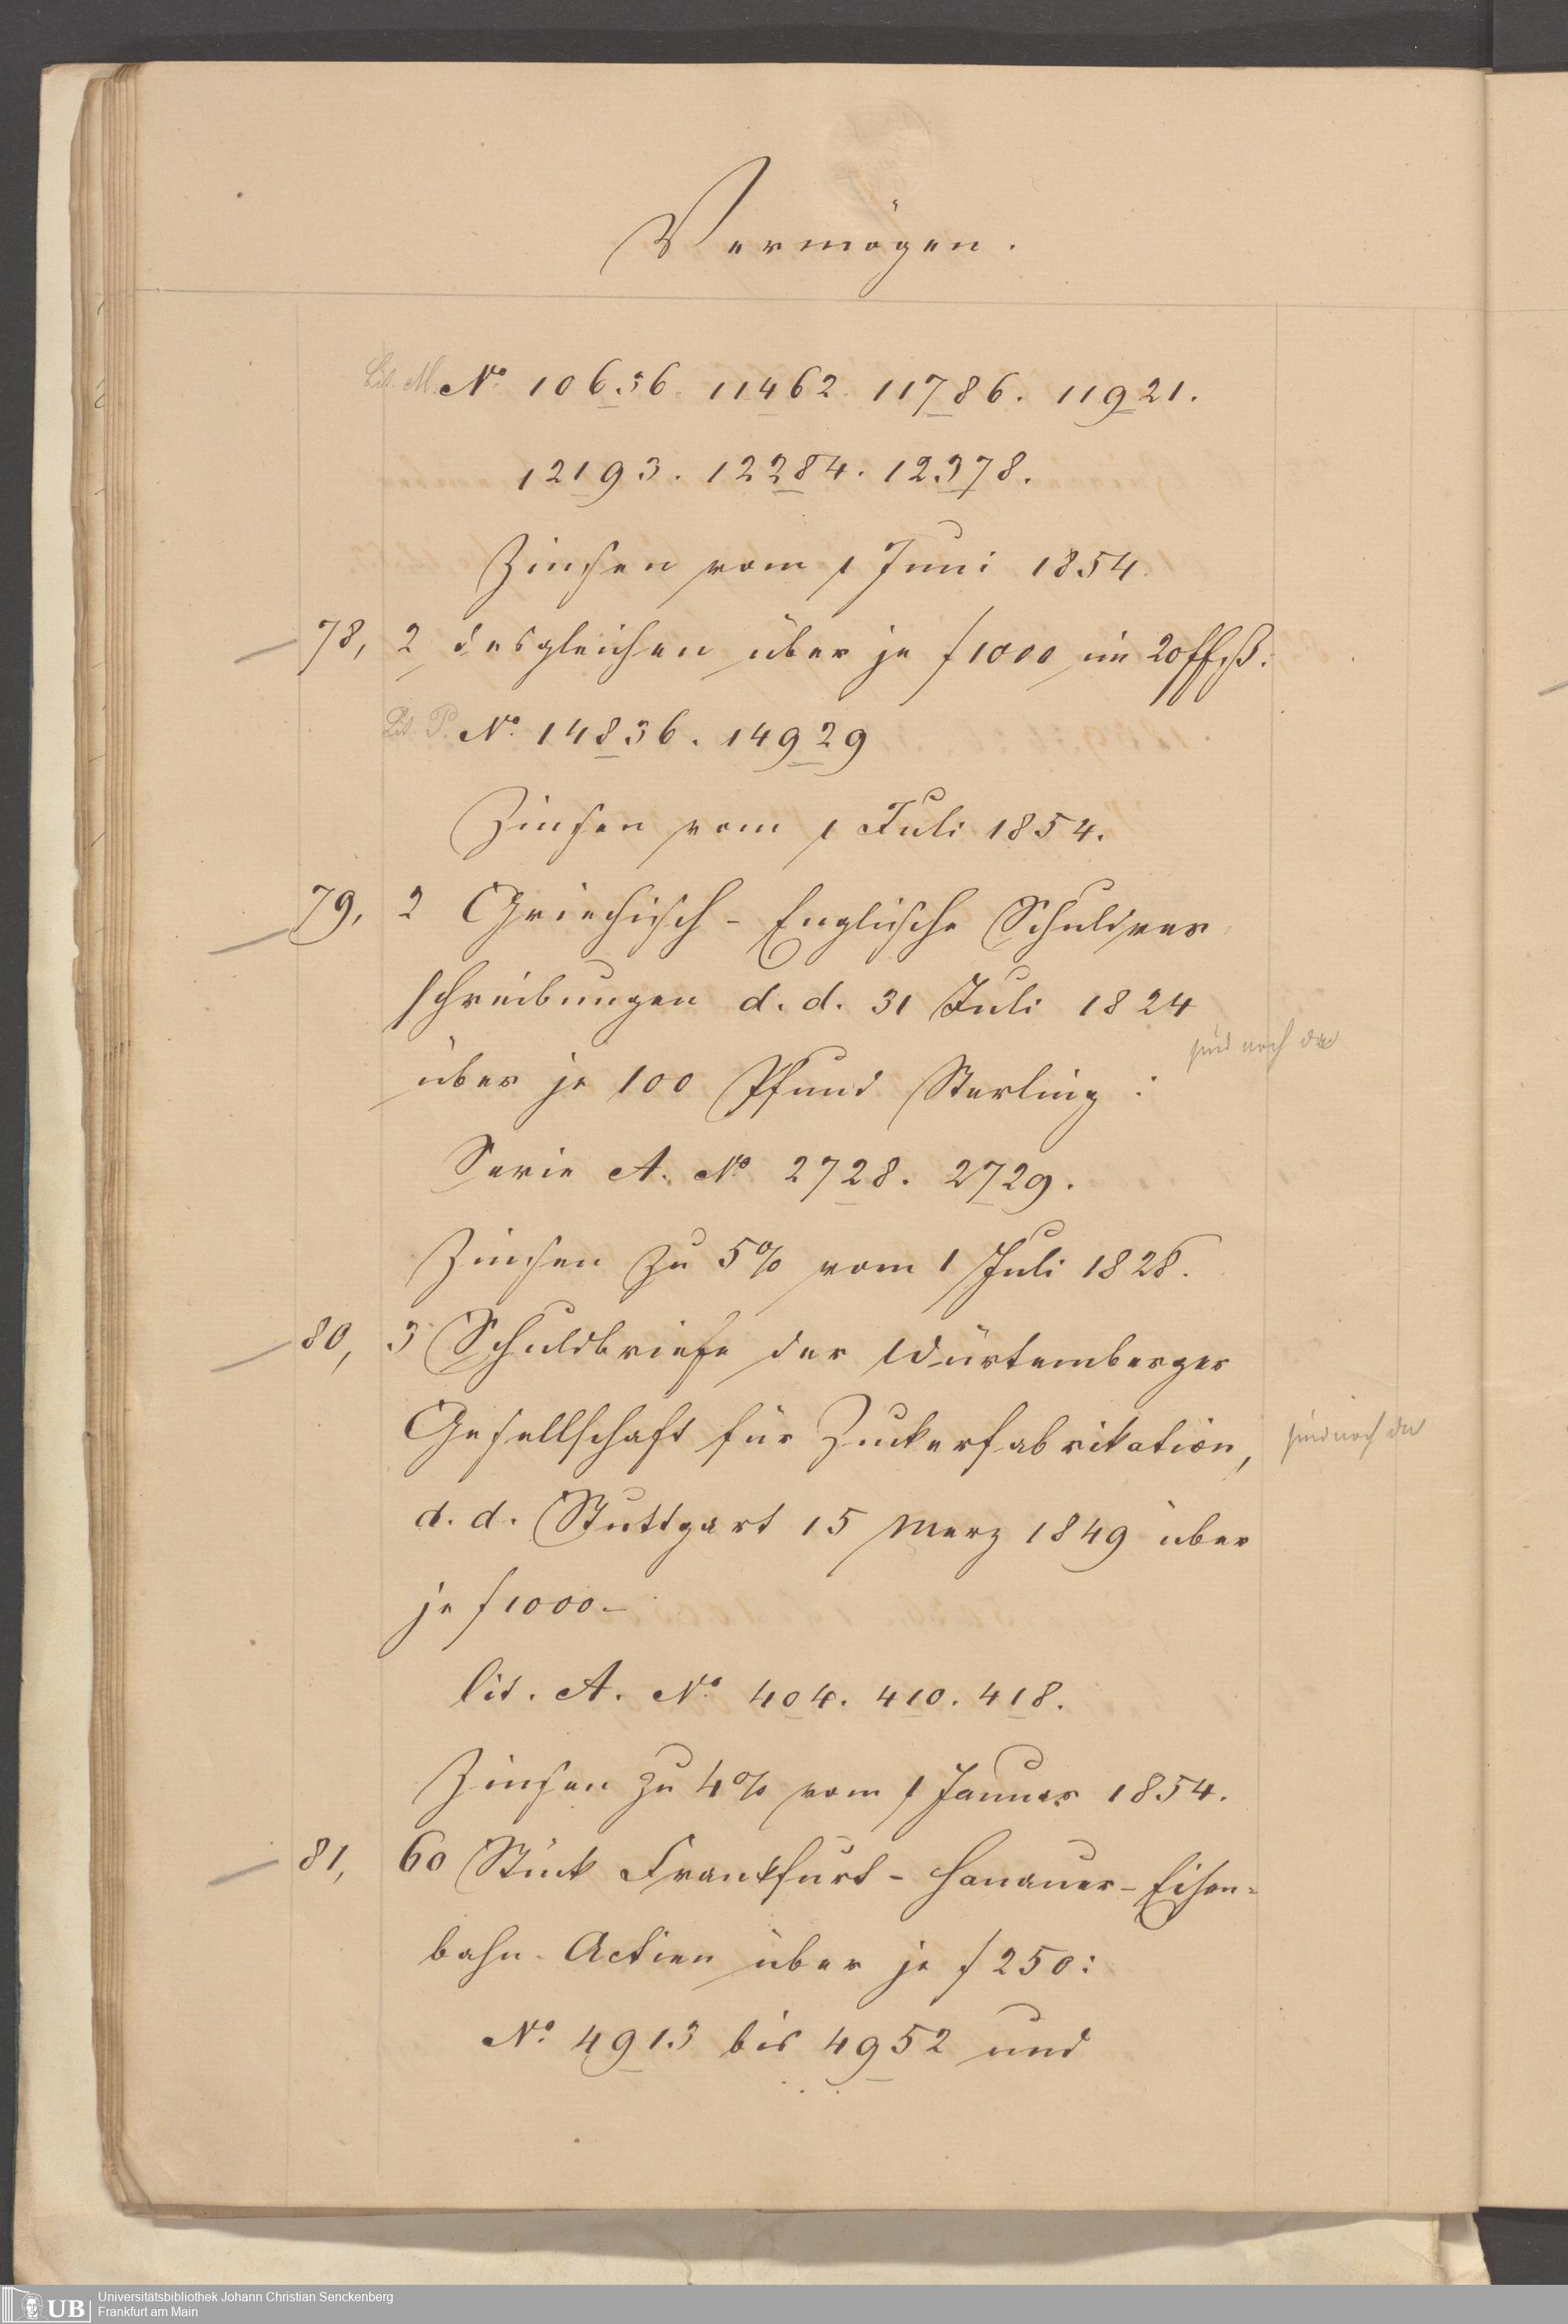 Vermögen.
Lit. M. No. 10636. 11462. 11786. 11921.
12193. 12284. 12378.
Zinsen vom 1 Juni 1854.
78, 2 desgleichen über je f 1000 im 20 ffß.
Lit. P. No. 14836. 14929
Zinsen vom 1 Juli 1854.
79, 2 Griechisch-Englische Schuldver
schreibungen d. d. 31 Juli 1824
sind noch da
über je 100 Pfund Sterling:
Serie A. No 2728. 2729.
Zinsen zu 5% vom 1 Juli 1826.
80, 3 Schuldbriefe der Würtemberger
Gesellschaft für Zuckerfabrikation,
sind noch da
d. d. Stuttgart 15 Merz 1849 über
je f 1000.–
lit. A. No. 404. 410. 418.
Zinsen zu 4% vom 1 Januar 1854.
81, 60 Stück Frankfurt-Hanauer-Eisen=
bahn-Actien über je f 250:
No. 4913 bis 4952 und
UB
Universitätsbibliothek Johann Christian Senckenberg
Frankfurt am Main